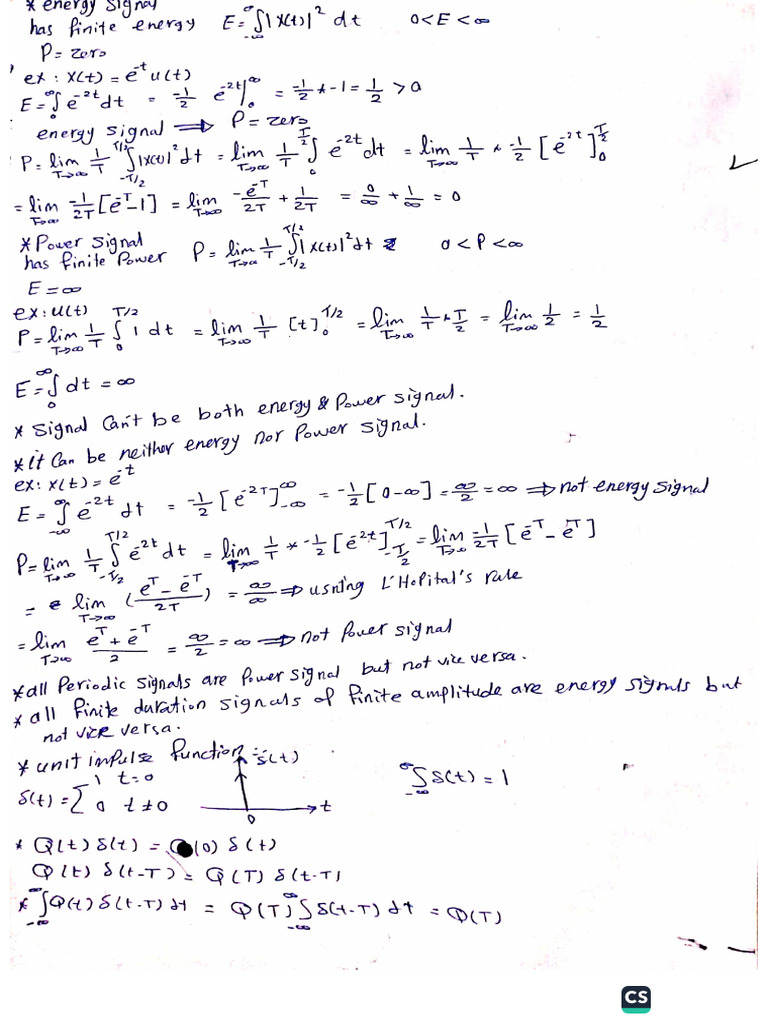 * energy signal
has finite energy E = ∫_{-∞}^{∞} |x(t)|² dt 0 < E < ∞
P = zero
ex: x(t) = e^{-t} u(t)
E = ∫_0^∞ e^{-2t} dt = -1/2 e^{-2t} |_0^∞ = -1/2 * -1 = 1/2 > 0
energy signal ⟹ P = zero
P = lim_{T→∞} 1/T ∫_{-T/2}^{T/2} |x(t)|² dt = lim_{T→∞} 1/T ∫_0^{T/2} e^{-2t} dt = lim_{T→∞} 1/T * -1/2 [e^{-2t}]_0^{T/2}
= lim_{T→∞} -1/2T [e^{-T} - 1] = lim_{T→∞} -e^{-T}/2T + 1/2T = 0/∞ + 1/∞ = 0
* Power signal
has finite Power P = lim_{T→∞} 1/T ∫_{-T/2}^{T/2} |x(t)|² dt 0 < P < ∞
E = ∞
ex: u(t)
P = lim_{T→∞} 1/T ∫_0^{T/2} 1 dt = lim_{T→∞} 1/T [t]_0^{T/2} = lim_{T→∞} 1/T * T/2 = lim_{T→∞} 1/2 = 1/2
E = ∫_0^∞ dt = ∞
* signal can't be both energy & Power signal.
* it can be neither energy nor Power signal.
ex: x(t) = e^{-t}
E = ∫_{-∞}^{∞} e^{-2t} dt = -1/2 [e^{-2T}]_{-∞}^{∞} = -1/2 [0 - ∞] = ∞/2 = ∞ ⟹ not energy signal
P = lim_{T→∞} 1/T ∫_{-T/2}^{T/2} e^{-2t} dt = lim_{T→∞} 1/T * -1/2 [e^{-2t}]_{-T/2}^{T/2} = lim_{T→∞} -1/2T [e^{-T} - e^{T}]
= lim_{T→∞} (e^T - e^{-T} / 2T) = ∞/∞ ⟹ usning L'Hopital's rule
= lim_{T→∞} e^T + e^{-T} / 2 = ∞/2 = ∞ ⟹ not Power signal
* all Periodic signals are Power signal but not vice versa.
* all finite duration signals of finite amplitude are energy signals but
not vice versa.
* unit impulse function :- δ(t)
δ(t) = { 1 t = 0
0 t ≠ 0
t
0
∫_{-∞}^{∞} δ(t) = 1
* Φ(t) δ(t) = Φ(0) δ(t)
Φ(t) δ(t-T) = Φ(T) δ(t-T)
* ∫_{-∞}^{∞} Φ(t) δ(t-T) dt = Φ(T) ∫_{-∞}^{∞} δ(t-T) dt = Φ(T)
CS